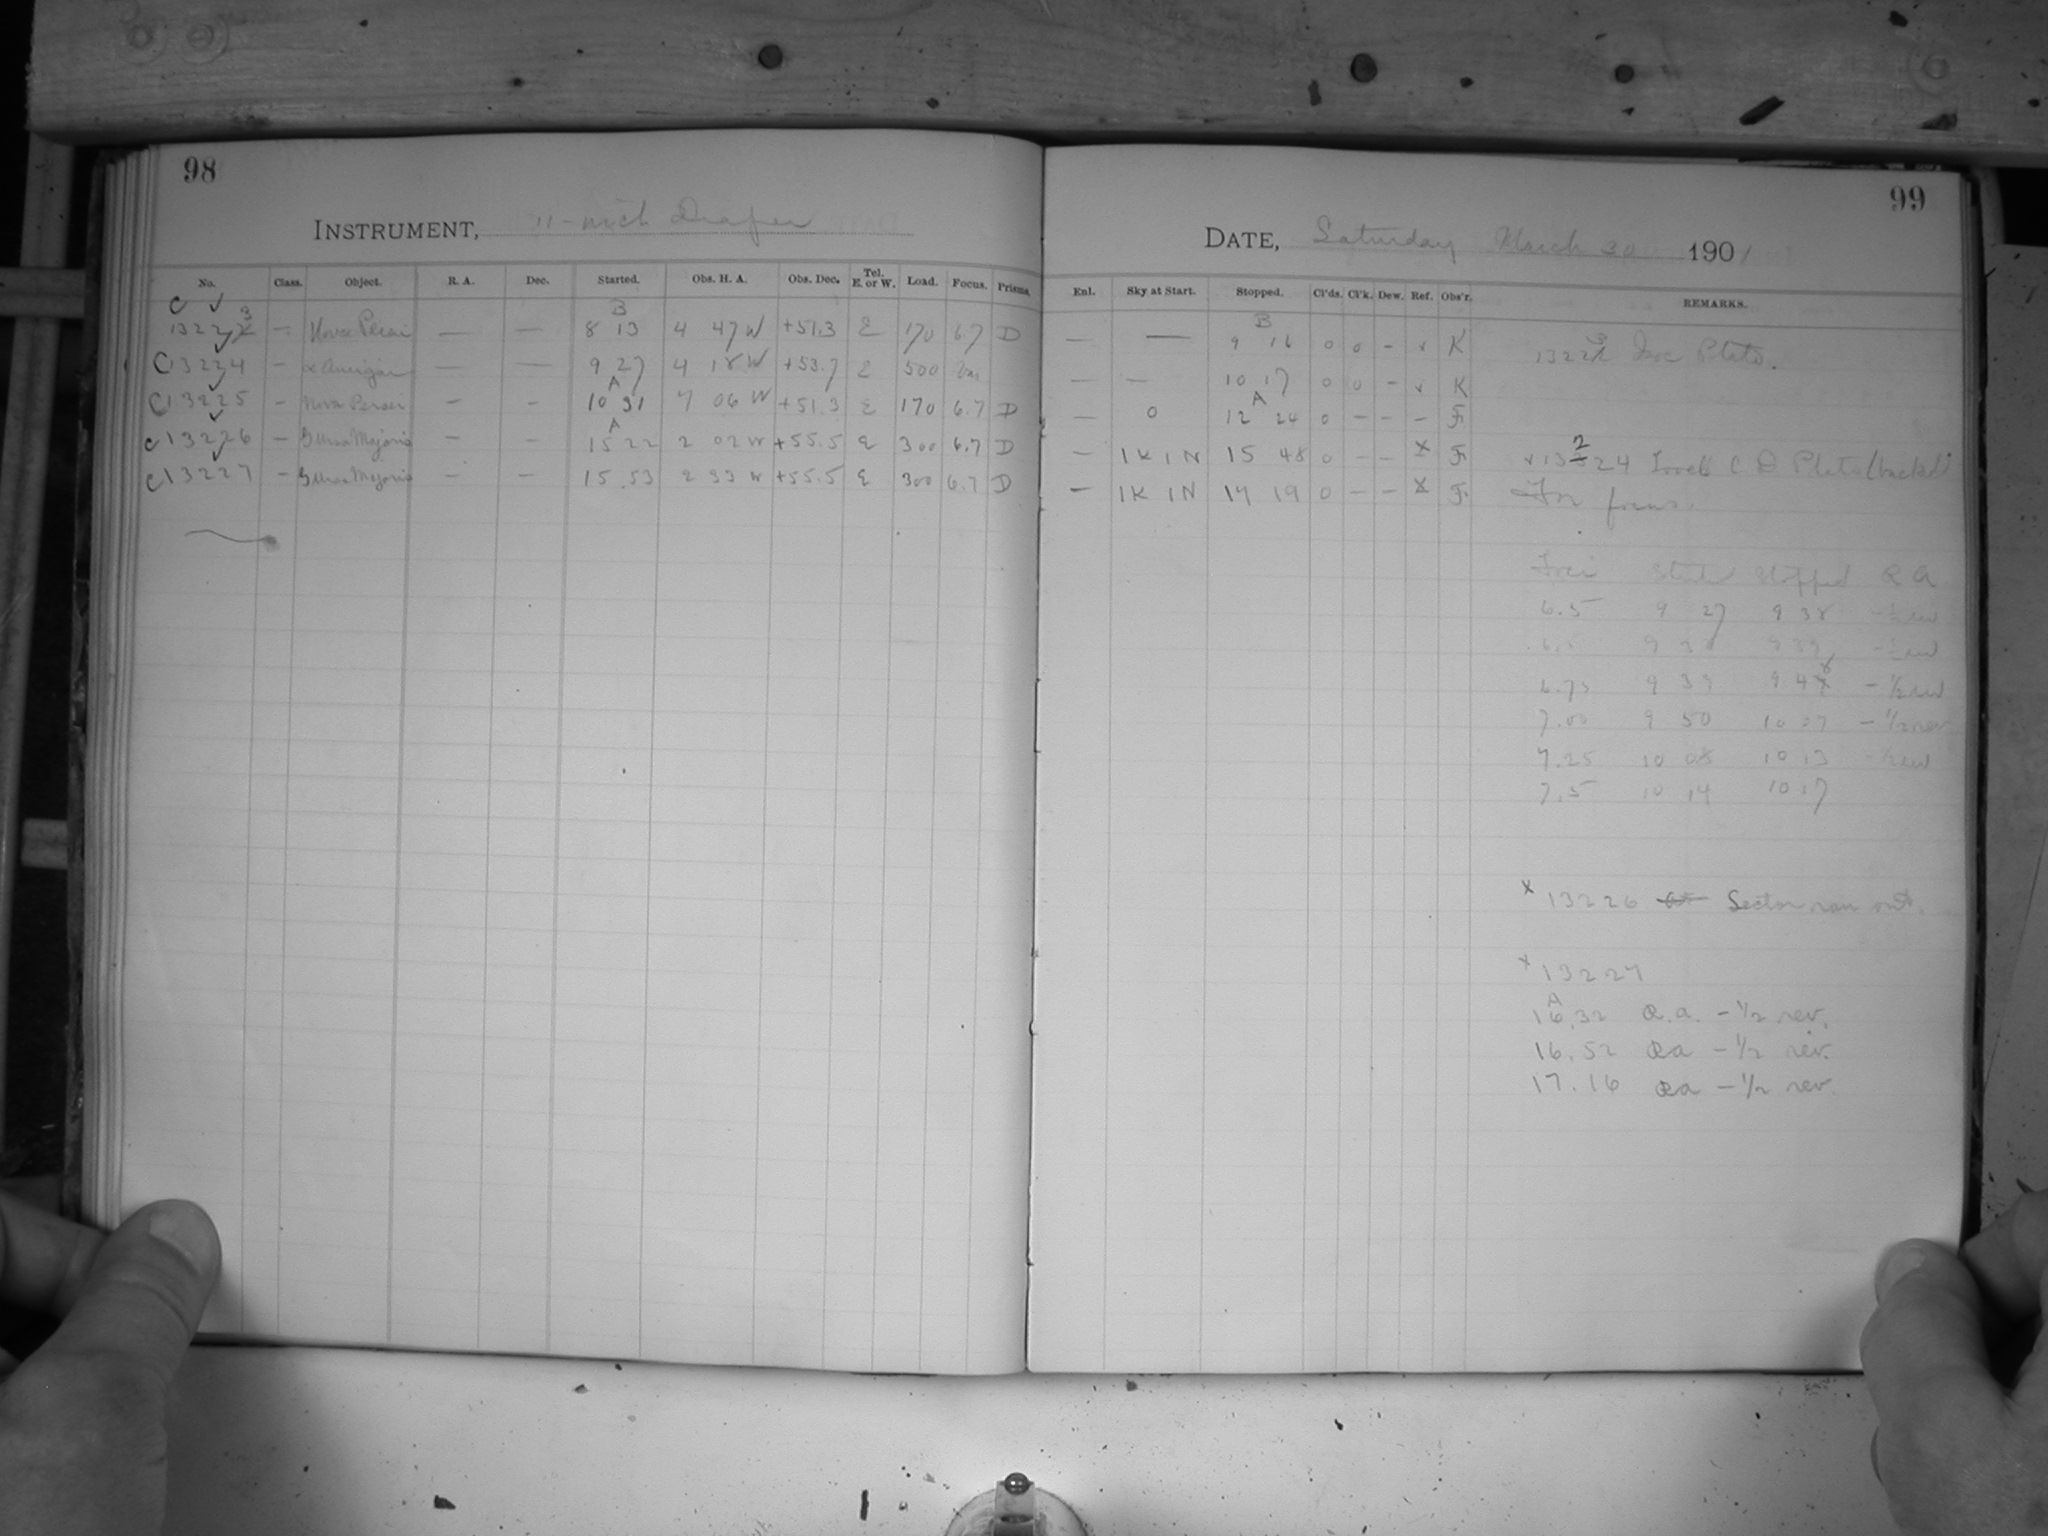 98
INSTRUMENT, 11-inch Draper
No. Class. Object. R. A. Dec. Started. Obs. H. A. Obs. Dec. Tel. E. or W. Load. Focus. Prisms.
C 13223 — Nova Persei — — B 8 13 4 47 W +51.3 E 170 6.7 D
C 13224 — α Aurigae — — 9 27 4 18 W +53.7 E 500 Var
C 13225 — Nova Persei — — A 10 31 7 06 W +51.3 E 170 6.7 D
C 13226 — Ursa Majoris — — A 15 22 2 02 W +55.5 E 300 6.7 D
C 13227 — Ursa Majoris — — 15.53 2 33 W +55.5 E 300 6.7 D
99
DATE, Saturday March 30 1901
Enl. Sky at Start. Stopped. Cl'ds. Cl'k. Dew. Ref. Obs'r. REMARKS.
— — B 9 16 0 0 - x K 13223 Iso Plate.
— — 10 17 0 0 - x K
— 0 A 12 24 0 - - - F
— 1K 1N 15 48 0 - - x F x 13224 C D Plate (backed)
— 1K 1N 17 19 0 - - x F. For focus.
Foci Started Stopped R A
6.5 9 27 9 38 -½ rev
9 39 -½ rev
6.75 9 39 9 48 -½ rev
7.00 9 50 10 07 -½ rev
7.25 10 08 10 13 -½ rev
7.5 10 14 10 17
x 13226 Sector ran out.
x 13227
A
16.32 R.a. -½ rev.
16.52 Ra -½ rev.
17.16 Ra -½ rev.